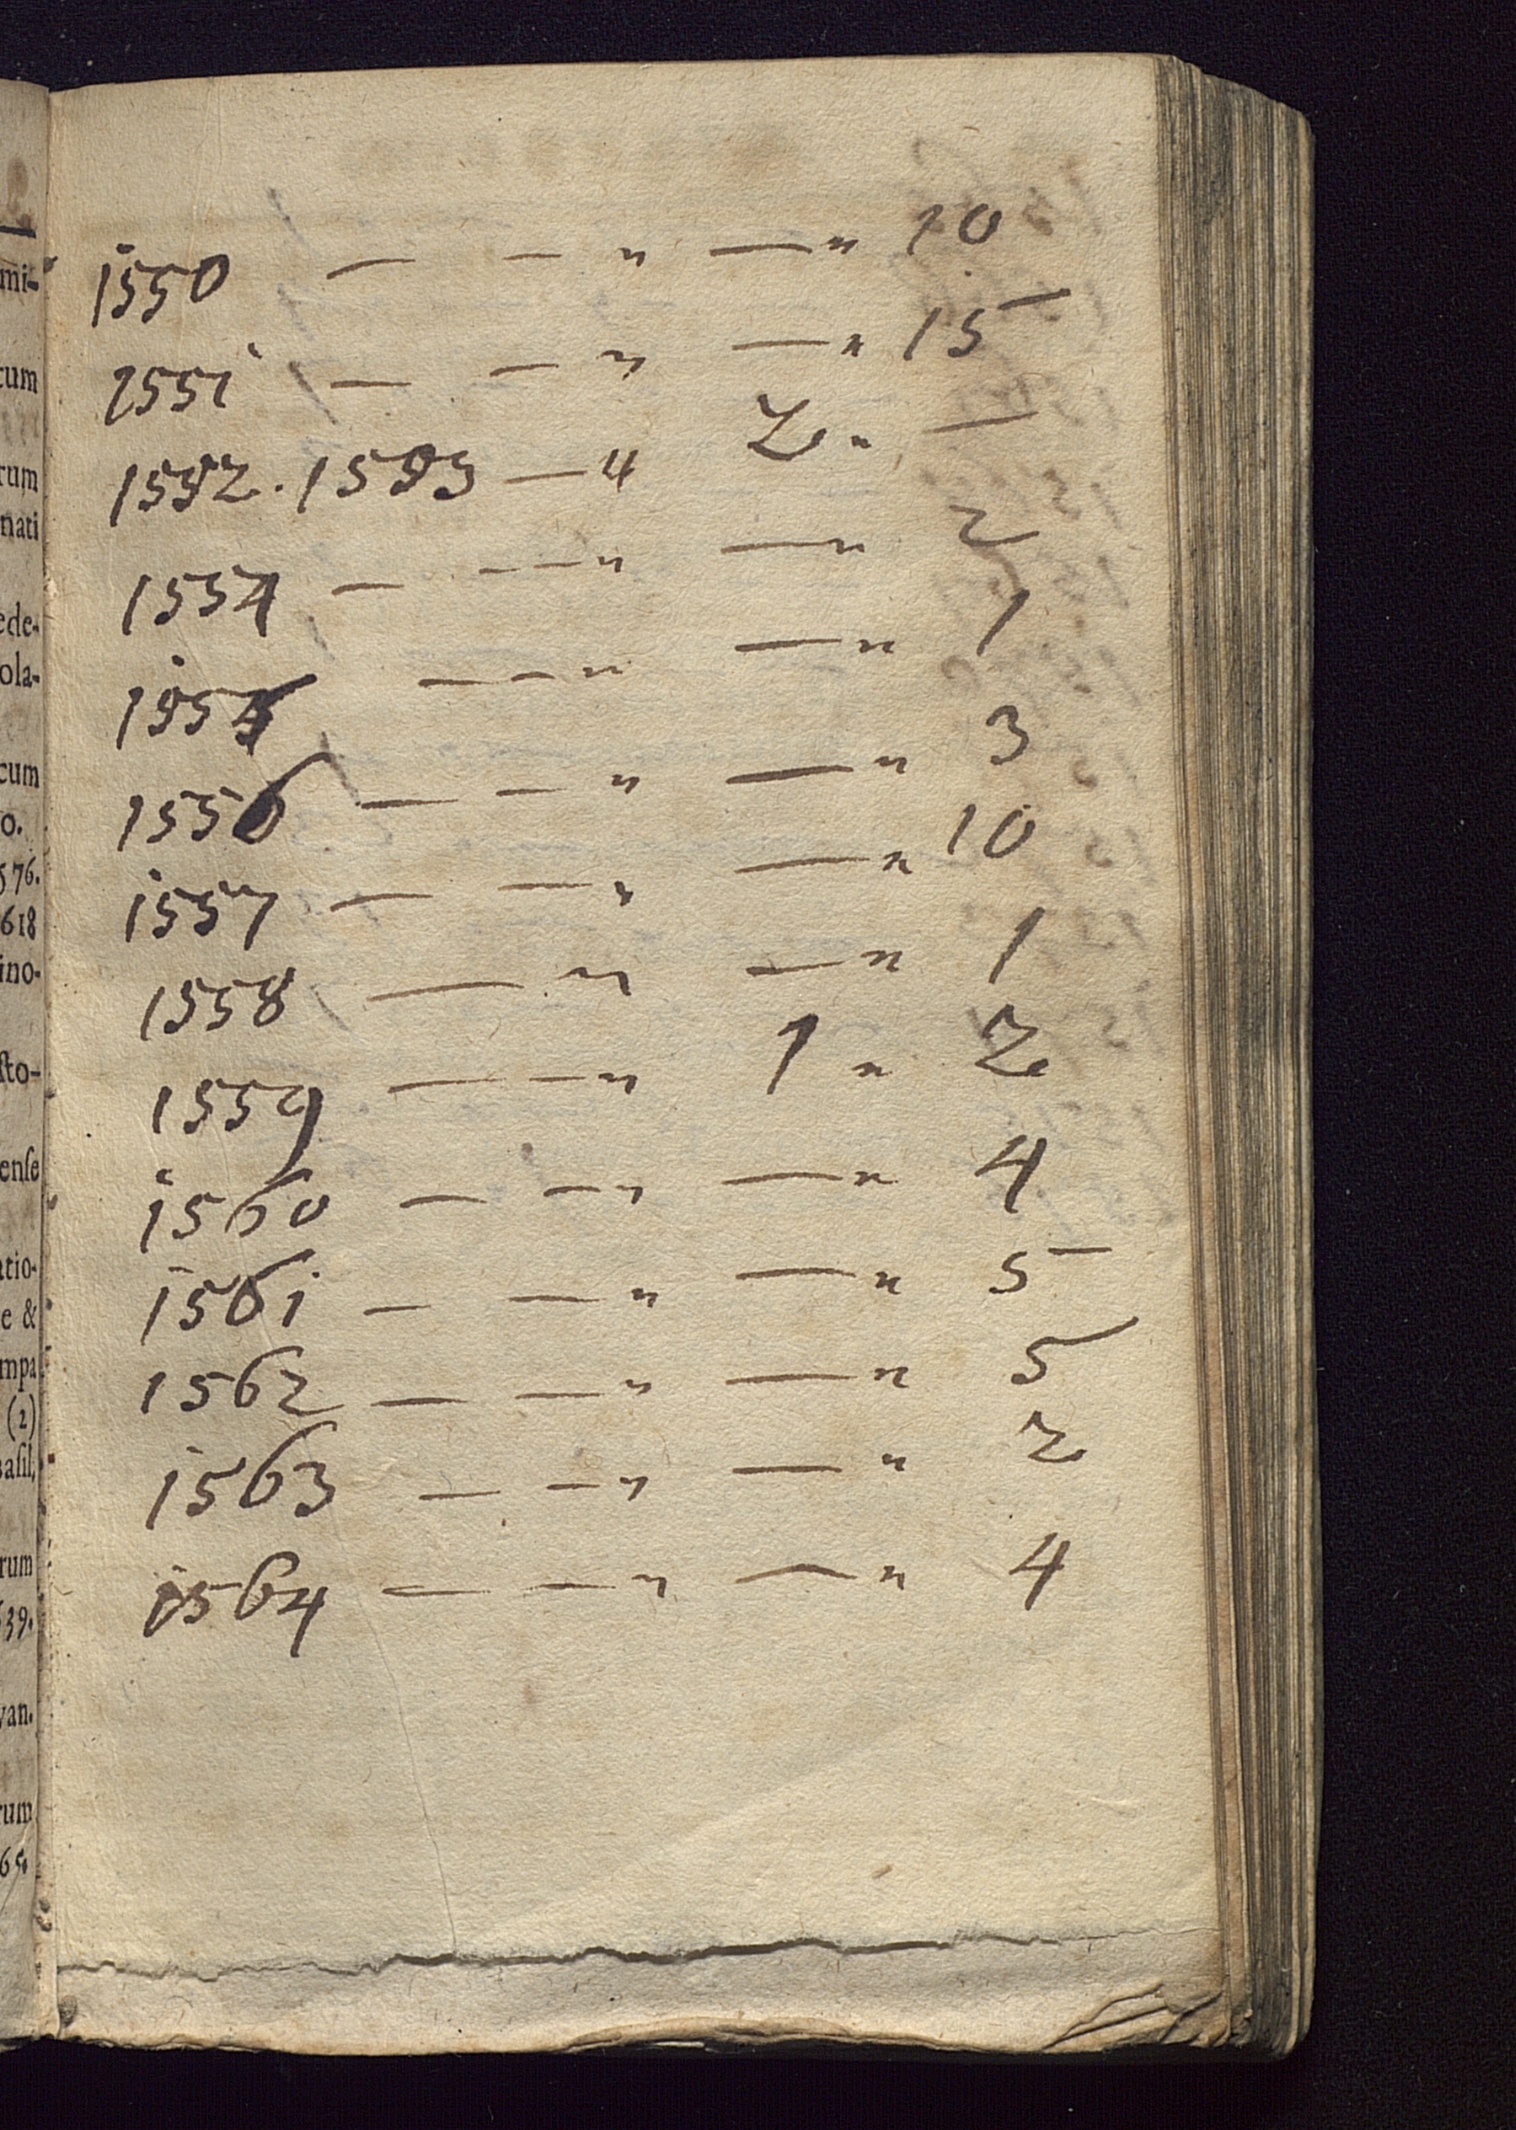 mi-
cum
rum
nati
ede-
ola-
cum
o.
576.
618
ino-
sto-
ense
atio-
e &
mpa
(2)
basil,
rum
639.
van.
rum
1550 — — " — " 10
1551 — — " — " 15
1552. 1553 — 4 2 " —
1554 — — — " — " 2
1555 — — " — " 1
1556 — — " — " 3
1557 — — " — " 10
1558 — " — " 1
1559 — — " 1 " 2
1560 — — " — " 4
1561 — — " — " 5
1562 — — " — " 5
1563 — — " — " 2
1564 — — " — " 4